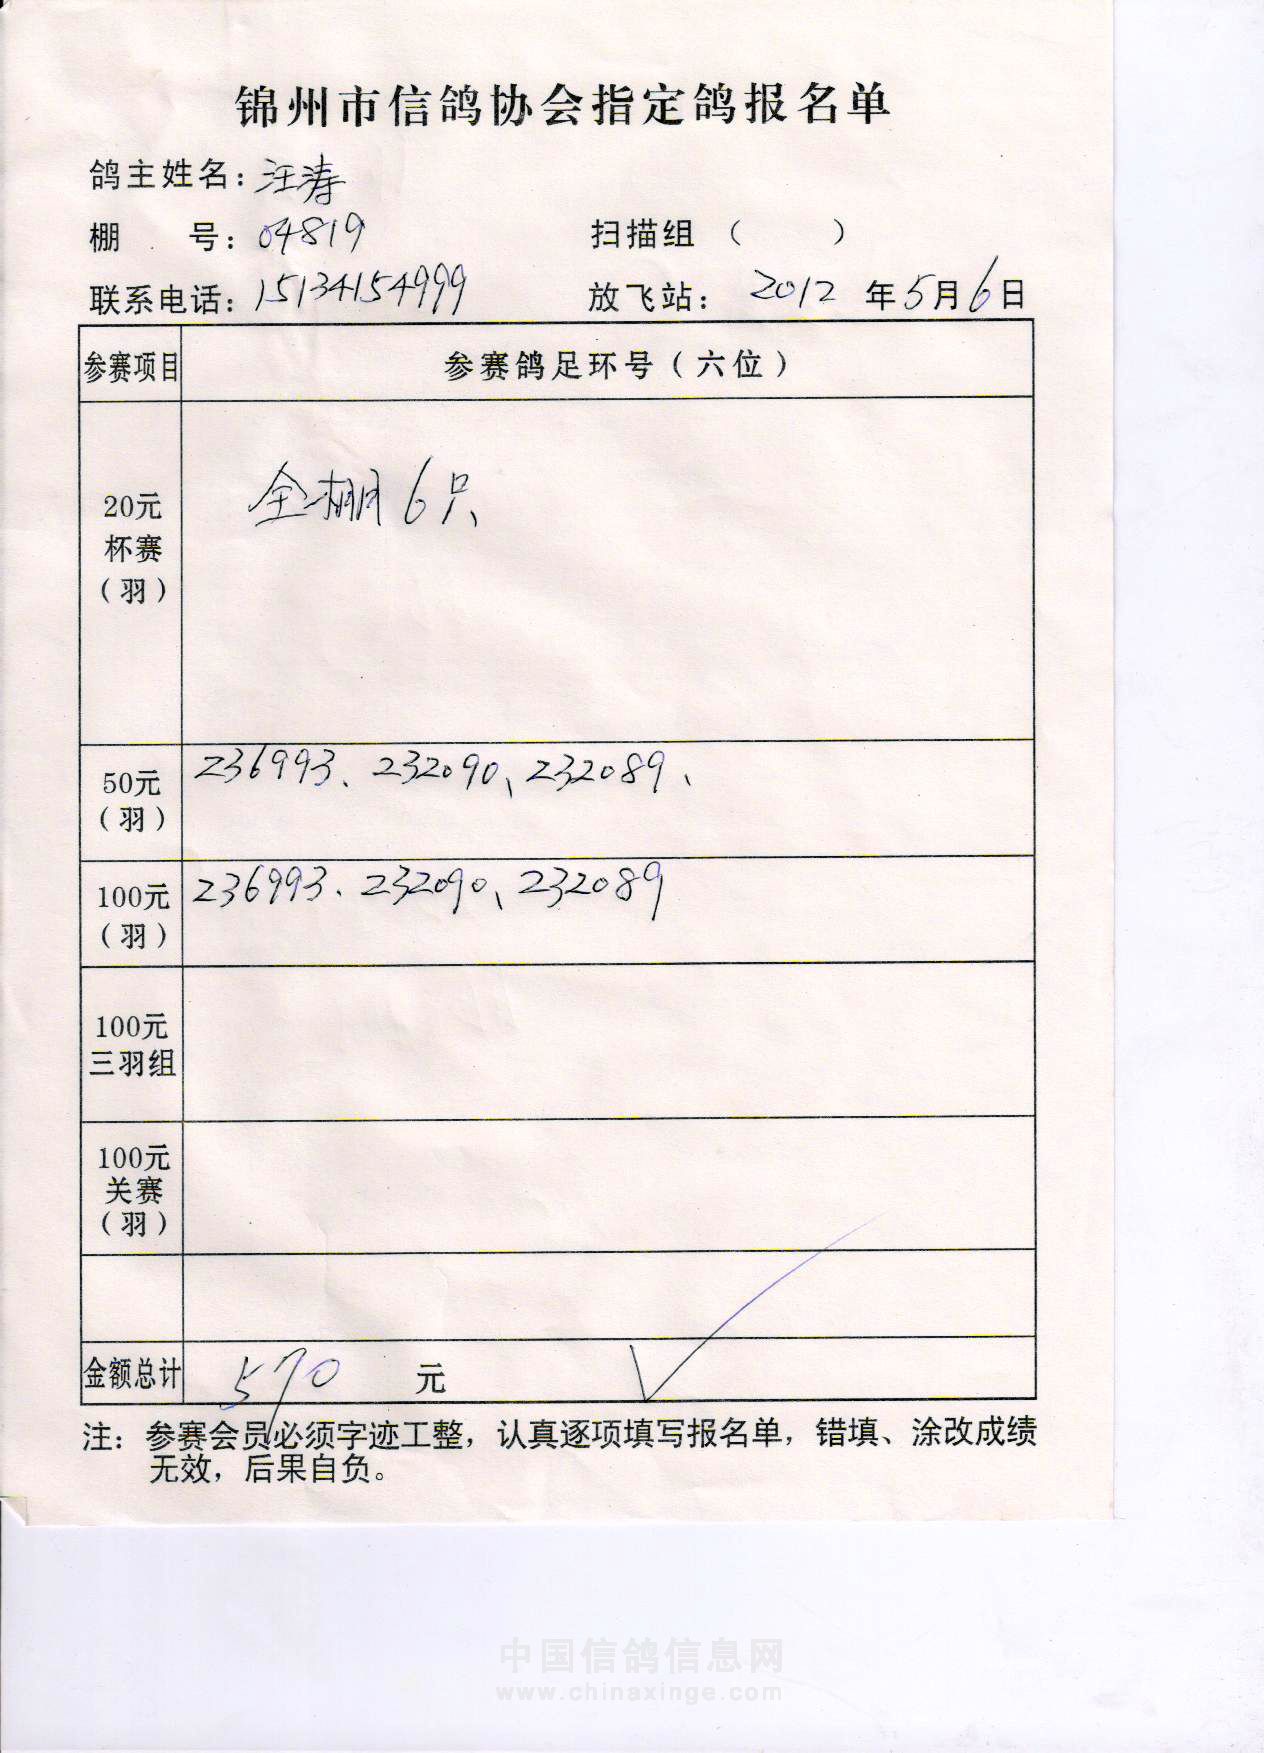 锦州市信鸽协会指定鸽报名单
鸽主姓名：汪涛
棚 号：04819 扫描组 （ ）
联系电话：15134154999 放飞站： 2012 年5月6日
参赛项目 参赛鸽足环号（六位）
20元
杯赛
（羽）
全棚6只
50元
（羽）
236993、232090、232089、
100元
（羽）
236993、232090、232089
100元
三羽组
100元
关赛
（羽）
金额总计 570 元
注：参赛会员必须字迹工整，认真逐项填写报名单，错填、涂改成绩
无效，后果自负。
中国信鸽信息网
www.chinaxinge.com